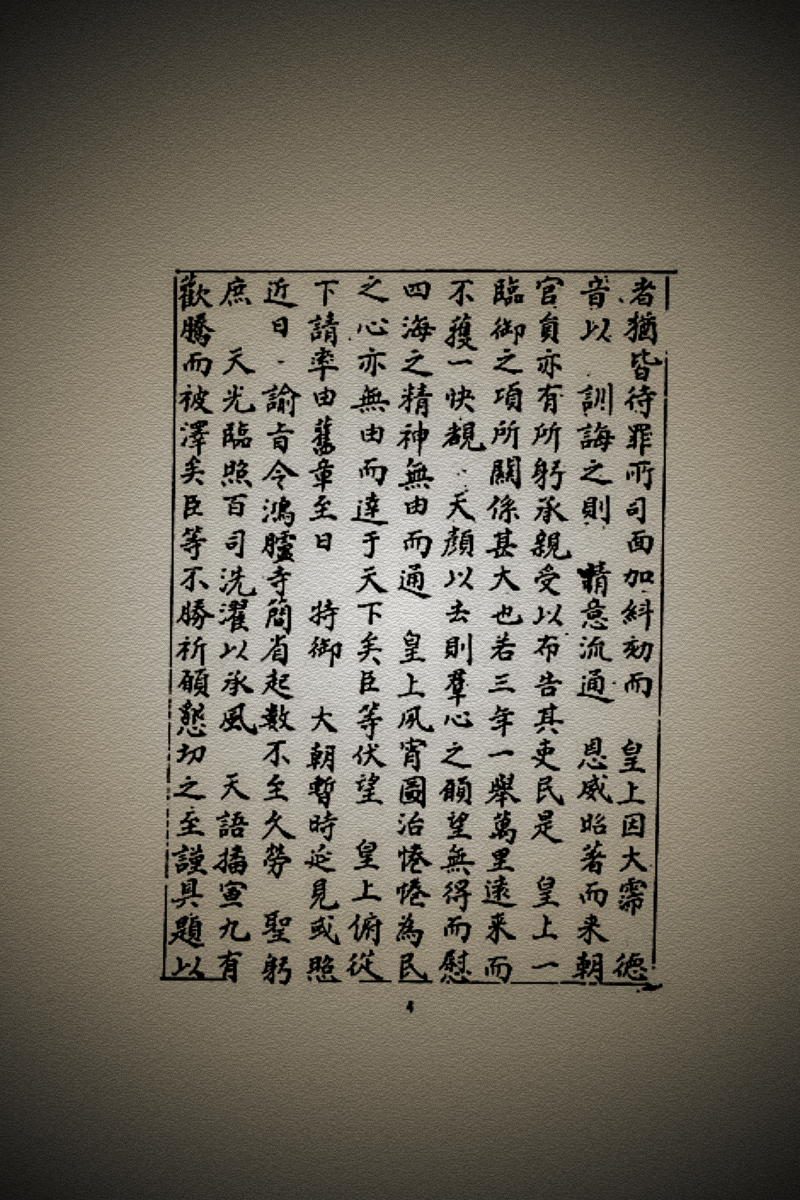 者猶皆待罪所司面加糾劾而　皇上因大霈　德
音以　訓誨之則　精意流通　恩威昭著而来朝
官員亦有所躬承親受以布告其吏民是　皇上一
臨御之項所關係甚大也若三年一舉萬里遠來而
不獲一快覩　天顏以去則羣心之願望無得而慰
四海之精神無由而通　皇上夙宵圖治惓惓為民
之心亦無由而達于天下矣臣等伏望　皇上俯從
下請率由舊章至日　特御　大朝暫時延見或照
近日　諭旨令鴻臚寺簡省起數不至久勞　聖躬
庶　天光臨照百司洗濯以承風　天語播宣九有
歡騰而被澤矣臣等不勝祈願懇切之至謹具題以
4